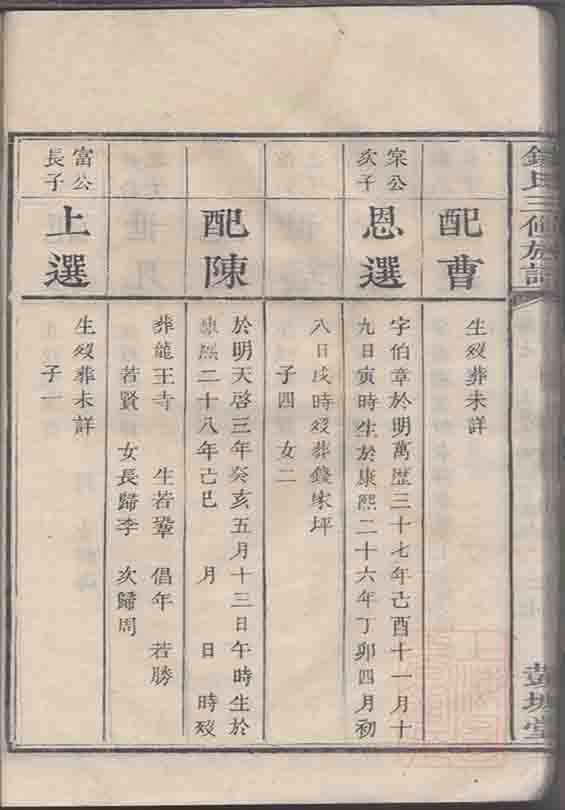 錢氏三修族譜
彭城堂
配曹
生歿葬未詳
寀公
亥子
恩選
字伯章於明萬歷三十七年己酉十一月十
九日寅時生於康熙二十六年丁卯四月初
八日戌時歿葬錢家坪
子四 女二
配陳
於明天啓三年癸亥五月十三日午時生於
康熙二十八年己巳 月 日 時歿
葬龍王寺 生若鞏 倡年 若勝
若賢 女長歸李 次歸周
富公
長子
上選
生歿葬未詳
子一